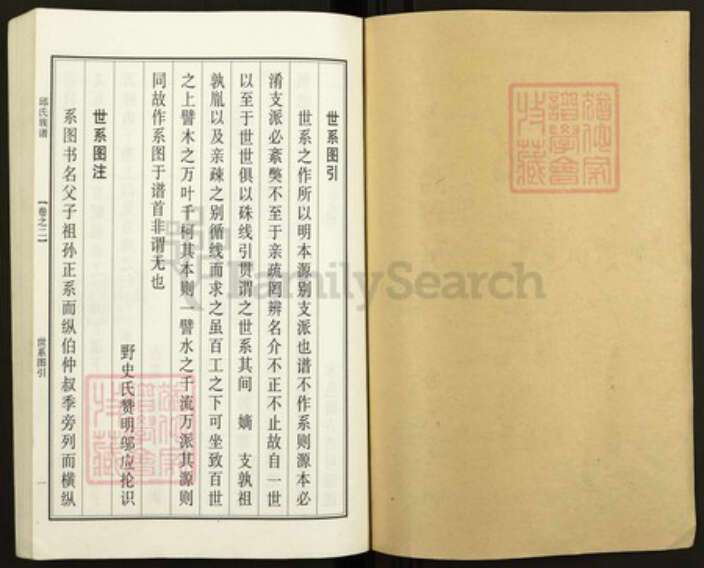 世系图引
世系之作所以明本源别支派也谱不作系则源本必
淆支派必紊獘不至于亲疏罔辨名介不正不止故自一世
以至于世世俱以硃线引贯谓之世系其间 嫡 支孰祖
孰胤以及亲疎之别循线而求之虽百工之下可坐致百世
之上譬木之万叶千柯其本则一譬水之千流万派其源则
同故作系图于谱首非谓无也
野史氏赞明邬应抡识
世系图注
系图书名父子祖孙正系而纵伯仲叔季旁列而横纵
邱氏族谱
【卷之二】
世系图引
一
FamilySearch